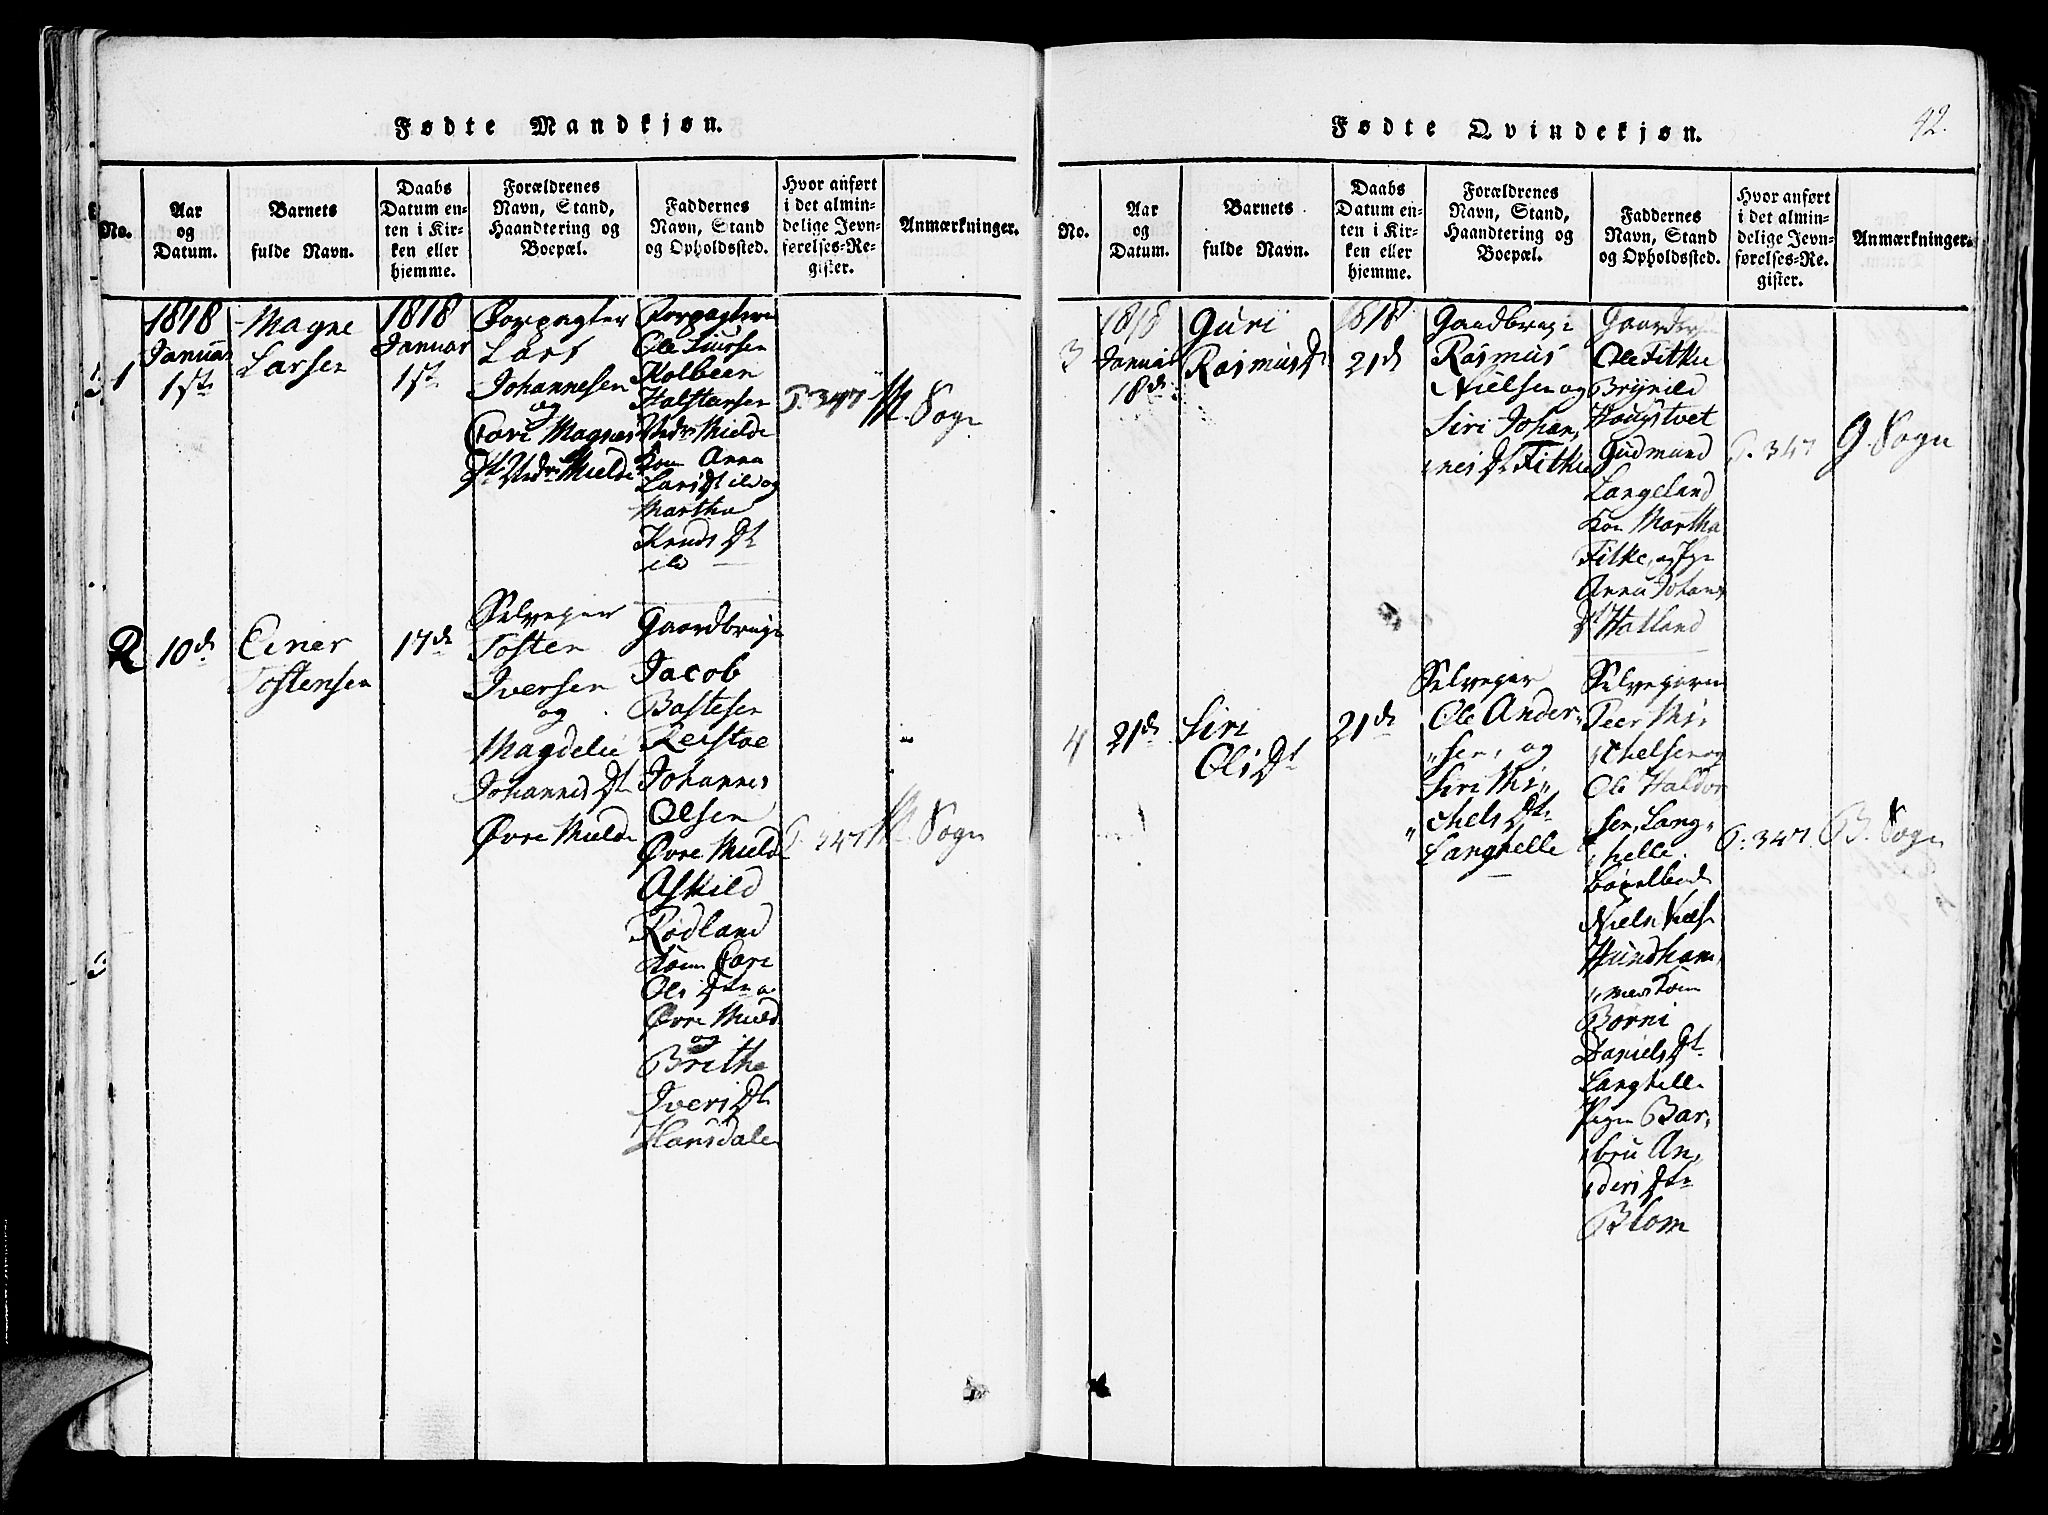 Fødte Mandkjøn.
No.
Aar
og
Datum.
Barnets
fulde Navn.
Daabs
Datum en-
ten i Kir-
ken eller
hjemme.
Forældrenes
Navn, Stand,
Haandtering og
Boepæl.
Faddernes
Navn, Stand
og Opholdssted.
Hvor anført
i det almin-
delige Jevn-
førelses-Re-
gister.
Anmærkninger.
1
1818
Januar
1ste
Magne
Larsen
1818
Januar
1ste
Forpagter
Lars
Johannesen
og
Cari Magnes
Dt Nedr Mielde
Forpagtern
Ole Larsen
Kolbeen
Halstensen
Nedr Mielde
Kon Anna
Lars Dt ibd og
Martha
Knuds Dt
ibd
P. 347
H. Sogn
2
10de
Einer
Tostensen
17de
Selveyer
Tosten
Iversen
og
Magdeli
Johannes Dt
Øvre Mielde
Gaardbruger
Jacob
Bastesen
Reistae
Johannes
Olsen
Øvre Mield
Askild
Rødland
Kone Cari
Ols Dt
Øvre Mield
og
Britha
Ivers Dt
Hansdalen
P. 347
H. Sogn
Fødte Qvindekjøn.
42.
No.
Aar
og
Datum.
Barnets
fulde Navn.
Daabs
Datum en-
ten i Kir-
ken eller
hjemme.
Forældrenes
Navn, Stand,
Haandtering og
Boepæl.
Faddernes
Navn, Stand
og Opholdssted.
Hvor anført
i det almin-
delige Jevn-
førelses-Re-
gister.
Anmærkninger.
3
1818
Januar
18de
Guri
Rasmus Dt
1818
21de
Gaadbruger
Rasmus
Nielsen og
Siri Johan,
nes Dt Fitkie
Ole Fitkie
Brynild
Haugstvet
Gudmund
Langeland
Kon Martha
Fitke, og Pige
Anna Johans
Dt Hatland
P. 347
G. Sogn
4
21de
Siri
Ols Dt
21de
Selveyer
Ole Ander
sen, og
Siri Mi,,
chels Dt
Langhelle
Selveyerne
Peer Mi,
chelsen og
Ole Haldor
sen, Lang,,
helle
Niels Niels
Hundham,
mer Kon
Børni
Daniels Dt
Langhelle
Pigen Bar,
bru An,
ders Dt
Blom
P. 347.
B. Sogn